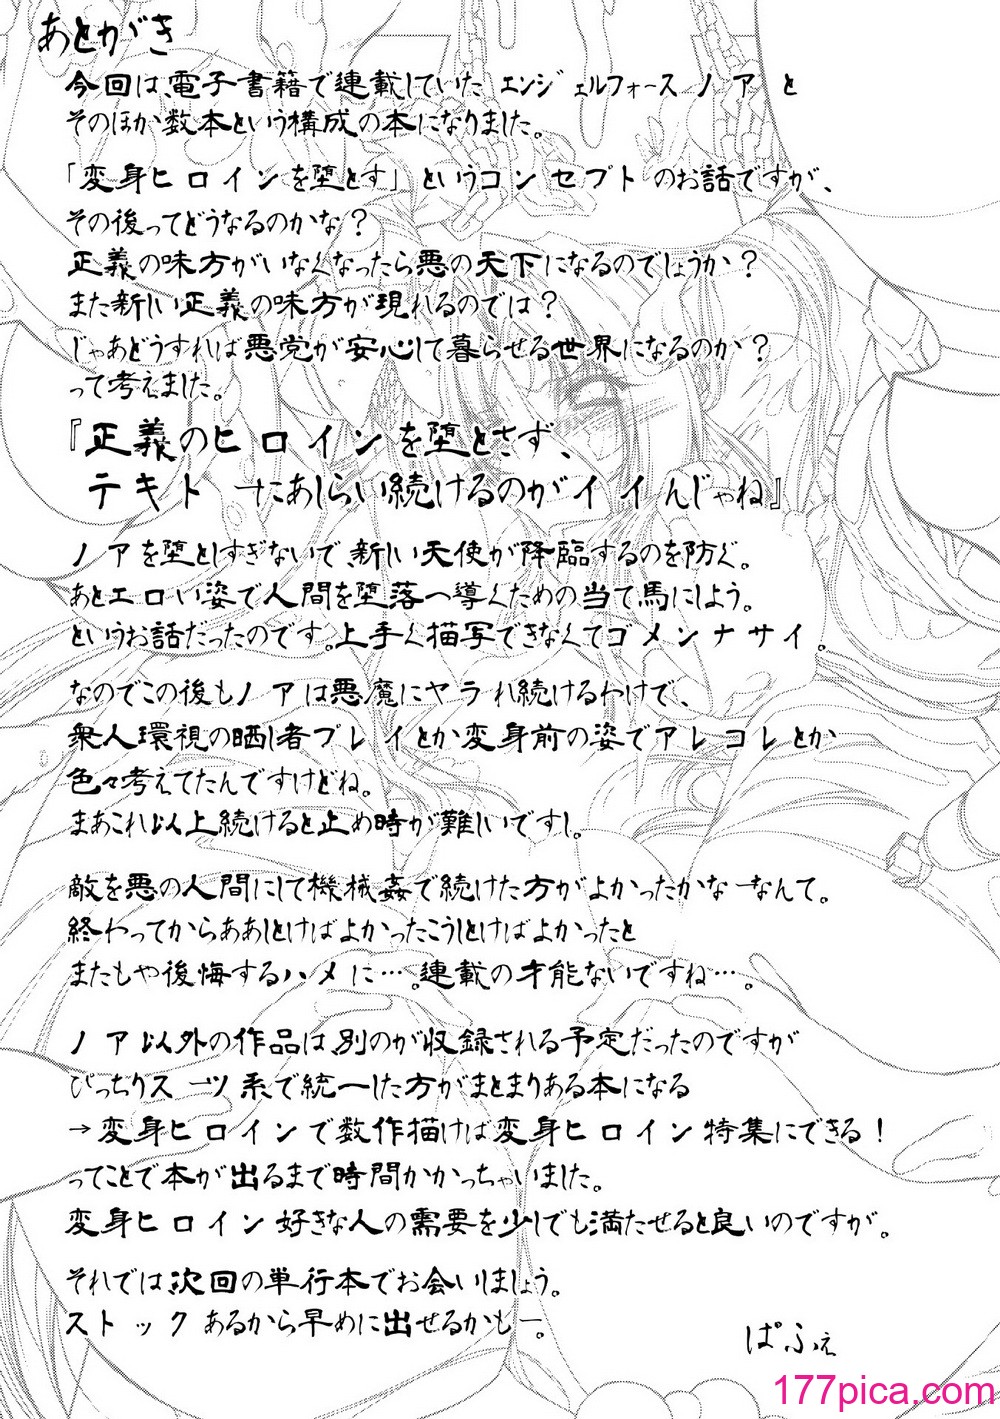 あとがき
今回は、電子書籍で連載していたエンジェルフォースノアと
そのほか数本という構成の本になりました。
「変身ヒロインを堕とす」というコンセプトのお話ですが、
その後ってどうなるのかな？
正義の味方がいなくなったら悪の天下になるのでしょうか？
また新しい正義の味方が現れるのでは？
じゃあどうすれば悪党が安心して暮らせる世界になるのか？
って考えました。
『正義のヒロインを堕とさず、
テキトーにあしらい続けるのがイイんじゃね』
ノアを堕としすぎないで、新しい天使が降臨するのを防ぐ。
あとエロい姿で人間を堕落へ導くための当て馬にしよう。
というお話だったのです。上手く描写できなくてゴメンナサイ。
なのでこの後もノアは悪魔にヤラれ続けるわけで、
衆人環視の晒し者プレイとか変身前の姿でアレコレとか
色々考えてたんですけどね。
まあこれ以上続けると止め時が難しいですし。
敵を悪の人間にして機械姦で続けた方がよかったかなーなんて。
終わってからああしとけばよかったこうしとけばよかったと
またもや後悔するハメに…。連載の才能ないですね…。
ノア以外の作品は、別のが収録される予定だったのですが
ぴっちりスーツ系で統一した方がまとまりある本になる
→変身ヒロインで数作描けば変身ヒロイン特集にできる！
ってことで本が出るまで時間かかっちゃいました。
変身ヒロイン好きな人の需要を少しでも満たせると良いのですが。
それでは、次回の単行本でお会いしましょう。
ストックあるから早めに出せるかもー。
ぱふぇ
177pica.com